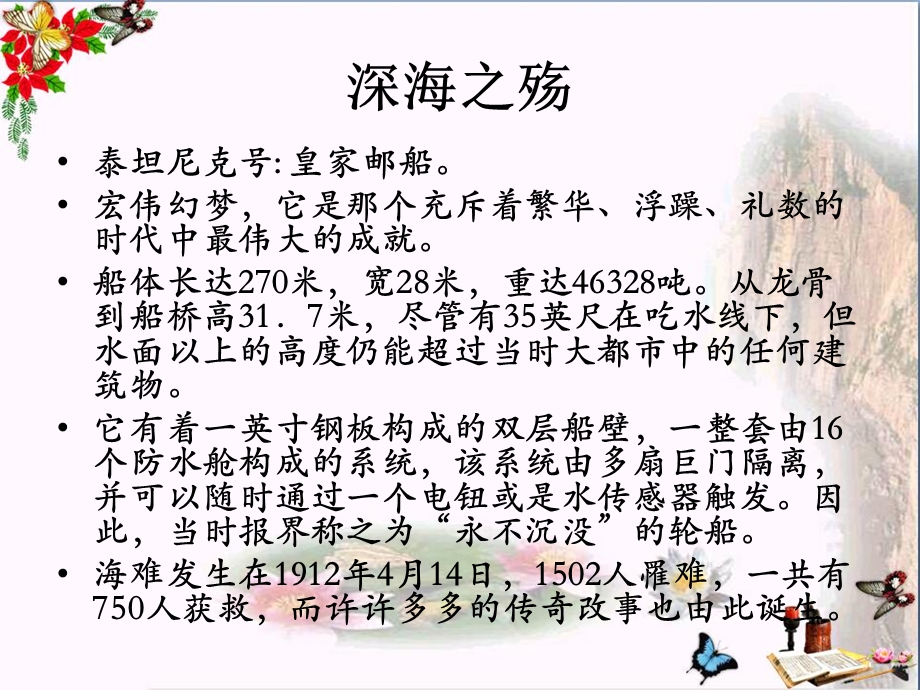 深海之殇
• 泰坦尼克号: 皇家邮船。
• 宏伟幻梦，它是那个充斥着繁华、浮躁、礼数的
时代中最伟大的成就。
• 船体长达270米，宽28米，重达46328吨。从龙骨
到船桥高31．7米，尽管有35英尺在吃水线下，但
水面以上的高度仍能超过当时大都市中的任何建
筑物。
• 它有着一英寸钢板构成的双层船壁，一整套由16
个防水舱构成的系统，该系统由多扇巨门隔离，
并可以随时通过一个电钮或是水传感器触发。因
此，当时报界称之为“永不沉没”的轮船。
• 海难发生在1912年4月14日，1502人罹难，一共有
750人获救，而许许多多的传奇改事也由此诞生。